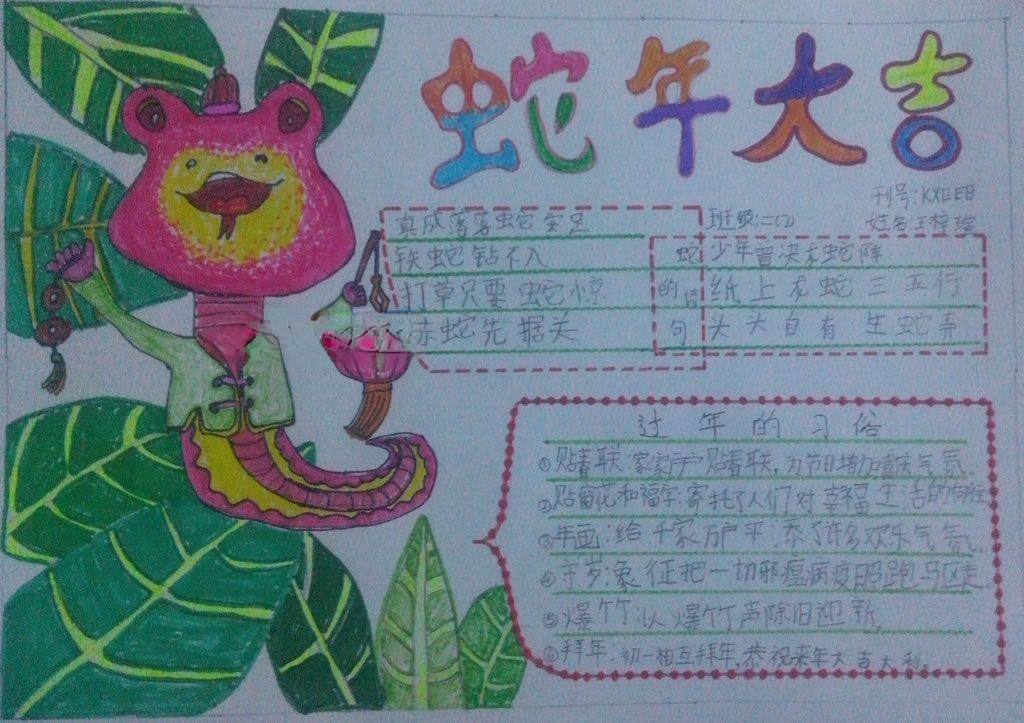 蛇年大吉
刊号:KXEEB
班级:二(2)
姓名:王梓
真成落落蛇安足
铁蛇钻不入
打草只要蛇惊
赤蛇先据关
蛇的诗句
少年曾决龙蛇阵
纸上龙蛇三五行
头头自有生蛇弄
过年的习俗
①贴春联:家家户户贴春联,为节日增加喜庆气氛
②贴窗花和福字:寄托了人们对幸福生活的向往
③年画:给千家万户平添了许多欢乐气氛
④守岁:象征把一切邪瘟病疫照跑马区走
⑤爆竹:以爆竹声除旧迎新。
⑥拜年:初一相互拜年,恭祝来年大吉大利。